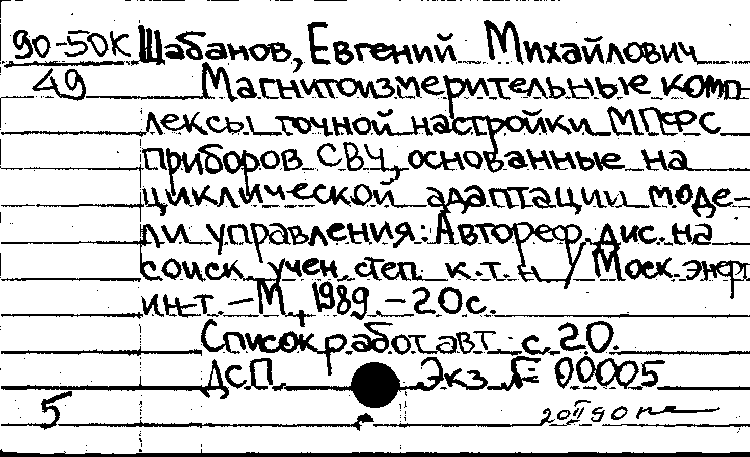 90-50К Шабанов, Евгений Михайлович
49 Магнитоизмерительные комп-
лексы точной настройки МПФС
приборов СВЧ, основанные на
циклической адаптации моде-
ли управления: Автореф. дис. на
соиск. учен. степ. к.т.н. / Моск. энерг.
ин-т. – М., 1989. – 20 с.
Список работ авт.: с. 20.
ДСП. Экз. № 00005
5 20 II 90